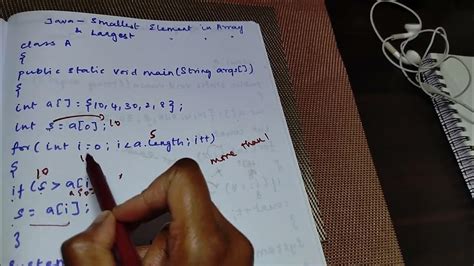 Java - Smallest Element in Array
& Largest " " "
class A
{
public static void main(String args[])
{
int a[] = {10,4,30,2,8};
int s = a[0]; 10
5
for( int i=0; i<a.length; i++)
{ more than!
10
if (s > a[i
s = a[i];
}